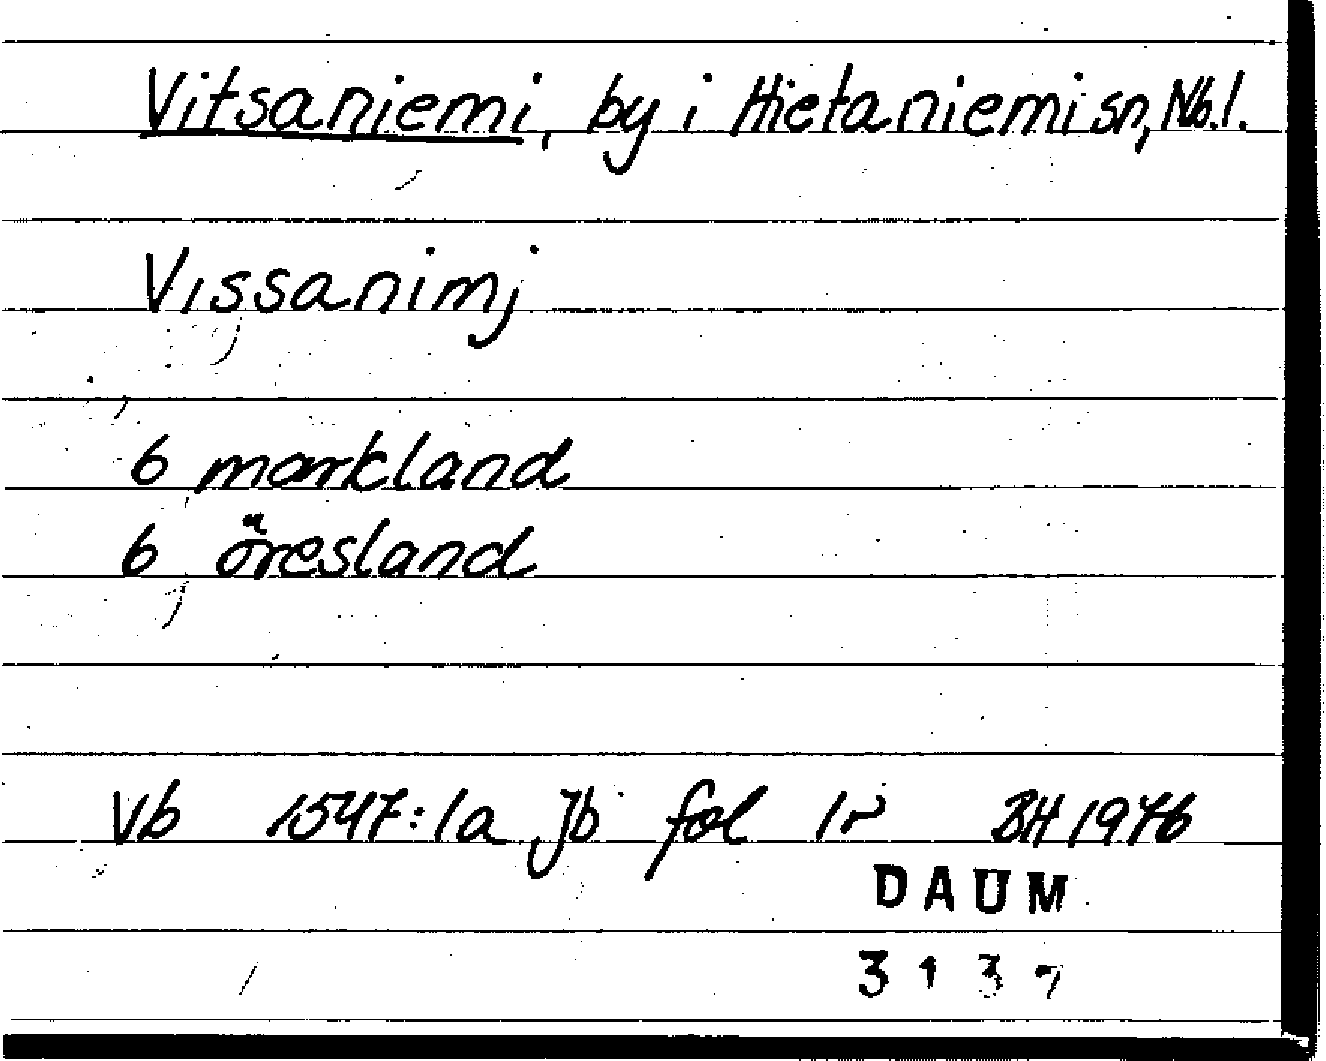 Vitsaniemi, by i Hietaniemi sn, Nb.l.
Vissanimj
6 markland
6 öresland
Vb 1547:1a Jb fol 1r BH 1976
DAUM
3137